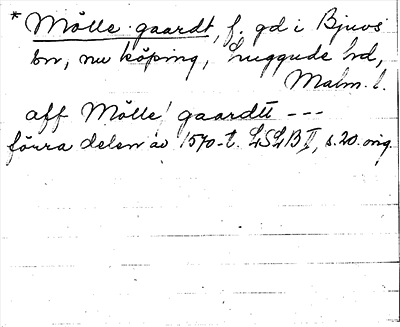 * Mölle gaardt, f. gd i Bjuvs
bn, nu köping, Luggude hd,
Malm. l.
aff Mölle gaardtt ---
förra delen av 1570-t. LSLB II, s. 20. orig.